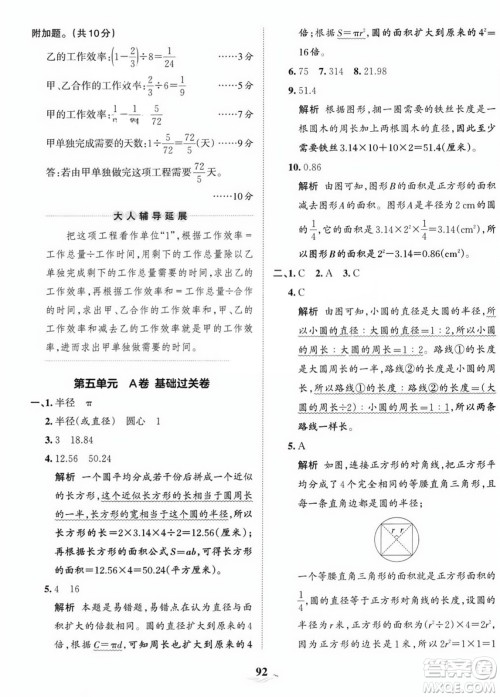 附加题。(共10分)
乙的工作效率:(1-2/3)÷8=1/24
……3分
甲、乙合作的工作效率:1÷6=1/6
……6分
甲的工作效率:1/6-1/24=
……
甲单独完成需要的天数:1÷5/72=72/5(天)
答:由甲单独做完这项工程需72/5天。
……10分
大人辅导延展
把这项工程看作单位“1”,根据工作效率
=工作总量÷工作时间,求出甲、乙合作的工
作效率。根据剩下的工作总量=工作总量-
已完成的工作总量,求出甲、乙合作后剩下的
工作总量。再根据乙的工作效率=甲、乙合作
后剩下的工作总量÷需要的时间,求出乙的工
作效率,从而求出甲的工作效率。
第五单元 A卷 基础过关卷
一、1. 半径 π
2. 半径(或直径) 圆心 1
3. 3 18.84
4. 12.56 50.24
解析 一个圆平均分成若干份后拼成近似
的长方形,长方形的长相当于圆周长
的一半,长方形的宽相当于圆的半径,所以
长=2×3.14×4÷2=12.56(厘米)。根
据长方形面积公式S=ab,长方形的面积
是12.56×4=50.24(平方厘米)。
5. 4 16
解析 本题是易错题,易错点是周长与面
积扩大的倍数。圆的半径扩大到原来的4
倍,根据C=πd,圆的周长也扩大到原来的4
倍;根据S=πr²,圆的面积扩大到原来的4²=
16倍。
6. 75 7. 314 8. 21.98
9. 51.4
解析 根据图形,捆一圈需要的铁丝长度是
一根圆木的周长加上两根圆木的直径,所以
需要铁丝3.14×10+10×2=51.4(厘米)。
10. 0.86
解析 由图可知,图形B的面积是正方形的面积
减去图形A的面积,图形A的面积是半径为2cm的圆
的1/4,所以图形B的面积是正方形的面积减去圆的
面积的1/4,即2×2-3.14×2²×1/4=0.86(cm²)。
二、1. C 2. A 3. C
4. C
解析 由图可知,小圆的直径是大圆的半
径,所以小圆的直径∶大圆的直径=1∶2,所以小
圆的周长∶大圆的周长=1∶2。路线①的
长度是大圆周长的一半,路线②的长度是
小圆的周长,所以路线①∶路线②=(大圆
的周长÷2)∶小圆的周长=1∶1,所以路
线①和路线②一样长。
5. A
解析 如图,连接正方形的对角线,把正方形平均
分成了4个完全相同的等腰直角三角形,正方形的
对角线的一半正好是圆的半径。
r r
一个等腰直角三角形的面积是正方形面积的
1/4,所以正方形的面积是1×1÷2×4=